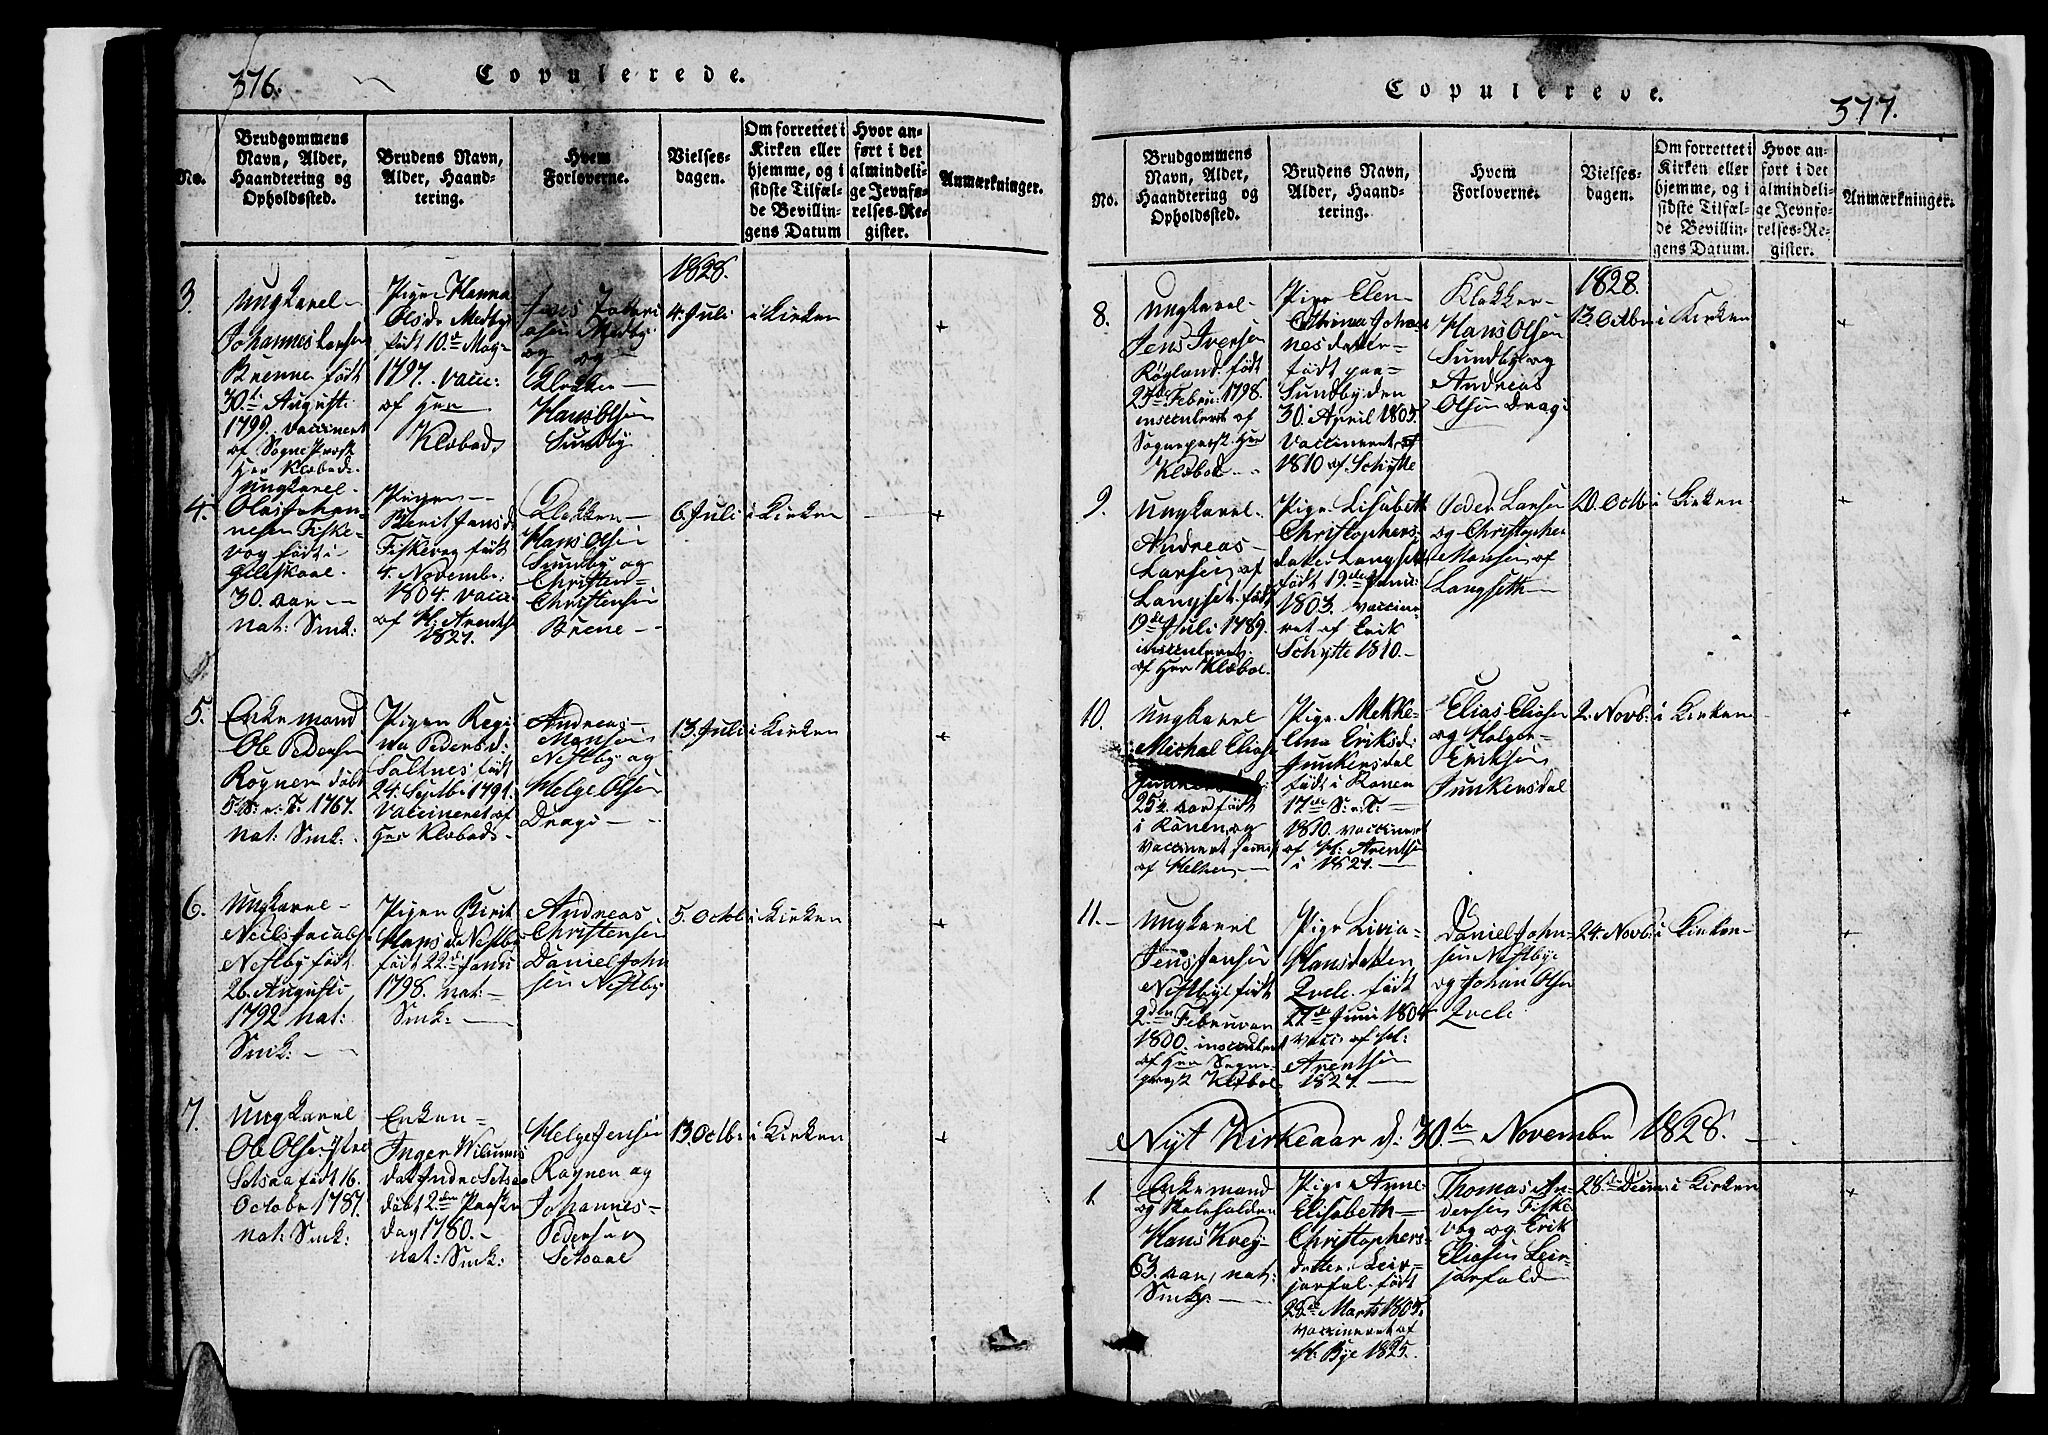 376.
Copulerede.
No.
Brudgommens
Navn, Alder,
Haandtering og
Opholdssted.
Brudens Navn,
Alder, Haand-
tering.
Hvem
Forloverne.
Vielses-
dagen.
Om forrettet i
Kirken eller
hjemme, og i
sidste Tilfæl-
de Bevillin-
gens Datum
Hvor an-
ført i det
almindeli-
ge Jevnfø-
relses-Re-
gister.
Anmærkninger.
1828.
3.
Ungkarl
Johannes Larsen
Brenne født
30te Augusti
1799. vaccinert
af Sogne Prost
Her Klæboe
Pigen Hanna
Olsd. Medby
født 10de May
1797. vacc:
af Her
Klæboe
Medby
og
Klokker
Hans Olsen
Sundby
4. Juli
i Kirken
+
4.
Ungkarl
Ole Johan-
nesen Fiske-
vog født i
Gildskaal
30. aar
nat: Smk:
Pigen
Berit Jensd.
Fiskevog født
4. Novembr:
1804. vacc:
af H: Arentz
1827.
Klokker
Hans Olsen
Sundby og
Christen
Christensen
Brene
6. Juli
i Kirken
+
5.
Enkemand
Ole Pedersen
Rognen døbt
5. S: e: T: 1767.
nat: Smk:
Pigen Regi-
na Pedersd:
Saltnes født
24. Septbr 1791.
Vaccineret af
Her Klæboe
Andreas
Monsen
Nestby og
Helge Olsen
Drage
13. Juli
i Kirken
+
6.
Ungkarl
Neils Jacobs:
Nestby født
26. Augusti
1792 nat:
Smk:
Pigen Berit
Hansd. Nestby
født 22. Janu
1798. nat:
Smk:
Andreas
Christensen
Daniel John
sen Nestby
5. Octb
i Kirken
+
7.
Ungkarl
Ole Olsen Ytre
Setsaa født 16.
October 1787.
nat: Smk:
Enken
Inger Wilums
dat. Indre Setsaa
døbt 2den Paaske
dag 1780.
nat: Smk:
Helge Jensen
Rognen og
Johannes
Pedersen
Setsaae
13. Octb:
i Kirken
+
377.
Copulerede.
No.
Brudgommens
Navn, Alder,
Haandtering og
Opholdssted.
Brudens Navn,
Alder, Haand-
tering.
Hvem
Forloverne.
Vielses-
dagen.
Om forrettet i
Kirken eller
hjemme, og i
sidste Tilfæl-
de Bevillin-
gens Datum.
Hvor an-
ført i det
almindeli-
ge Jevnfø-
relses-Re-
gister.
Anmærkninger.
1828.
8.
Ungkarl
Jens Iversen
Røgland født
25de Febru: 1798.
insculert af
Sogneprost Her
Klæboe
Pige Elen
Cathrina Johan
nesdatter
født paa
Sundby den
30 April 1805.
Vaccineret
1810 af Schytte
Klokker
Hans Olsen
Sundby og
Andreas
Olsen Drage
13. Octbr
i Kirken
+
9.
Ungkarl
Andreas
Larsen af
Langset født
19de Juli 1789.
insculeret
af Her Klæboe.
Pige Lisabeth
Christophers-
datter Langseth
født 19de Janu:
1803. vaccine-
ret af Erik
Schytte 1810.
Peder Larsen
og Christopher
Monsen af
Langseth
20. Octb
i Kirken
+
10.
Ungkarl
Michal Elias
25½ aar født
i Ranen og
vaccinert samest
af Helsen
Pige Mekke-
lina Eriksd:
Junkersdal
født i Ranen
17de S: e: T:
1810. vaccinert
af H: Arentzen
i 1827.
Elias Eliasen
og Holger
Eriksen
Junkersdal
2. Novb:
i Kirken
+
11.
Ungkarl
Jens Jensen
Nestbye født
2den Februar
1800. insculert
af Her Sogne-
prost Klæboe
Pige Livia
Hansdatter
Qvele født
27de Juni 1804
vacc: af H:
Arentzen
1827.
Daniel John-
sen Nestbye
og Johan Olsen
Qvele
24. Novb:
i Kirken
+
Nyt Kirkeaar d: 30te Novembr 1828.
1.
Enkemand
og Skoleholder
Hans Krey
63. aar, nat:
Smk:
Pige Anne
Elisabeth
Christophers-
datter Leir-
jorfal født
28de Marts 1805.
vaccineret af
H: Bye 1825.
Thomas An-
dersen Fiske
vog og Erik
Eliasen Leir-
jorfald
28de Decm:
i Kirken
+